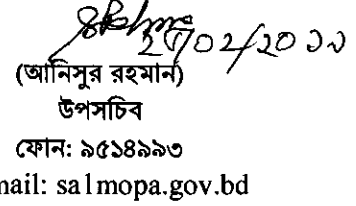 (আনিসুর রহমান)
উপসচিব
ফোন: ৯৫১৪৯৯৩
mail: sa1mopa.gov.bd